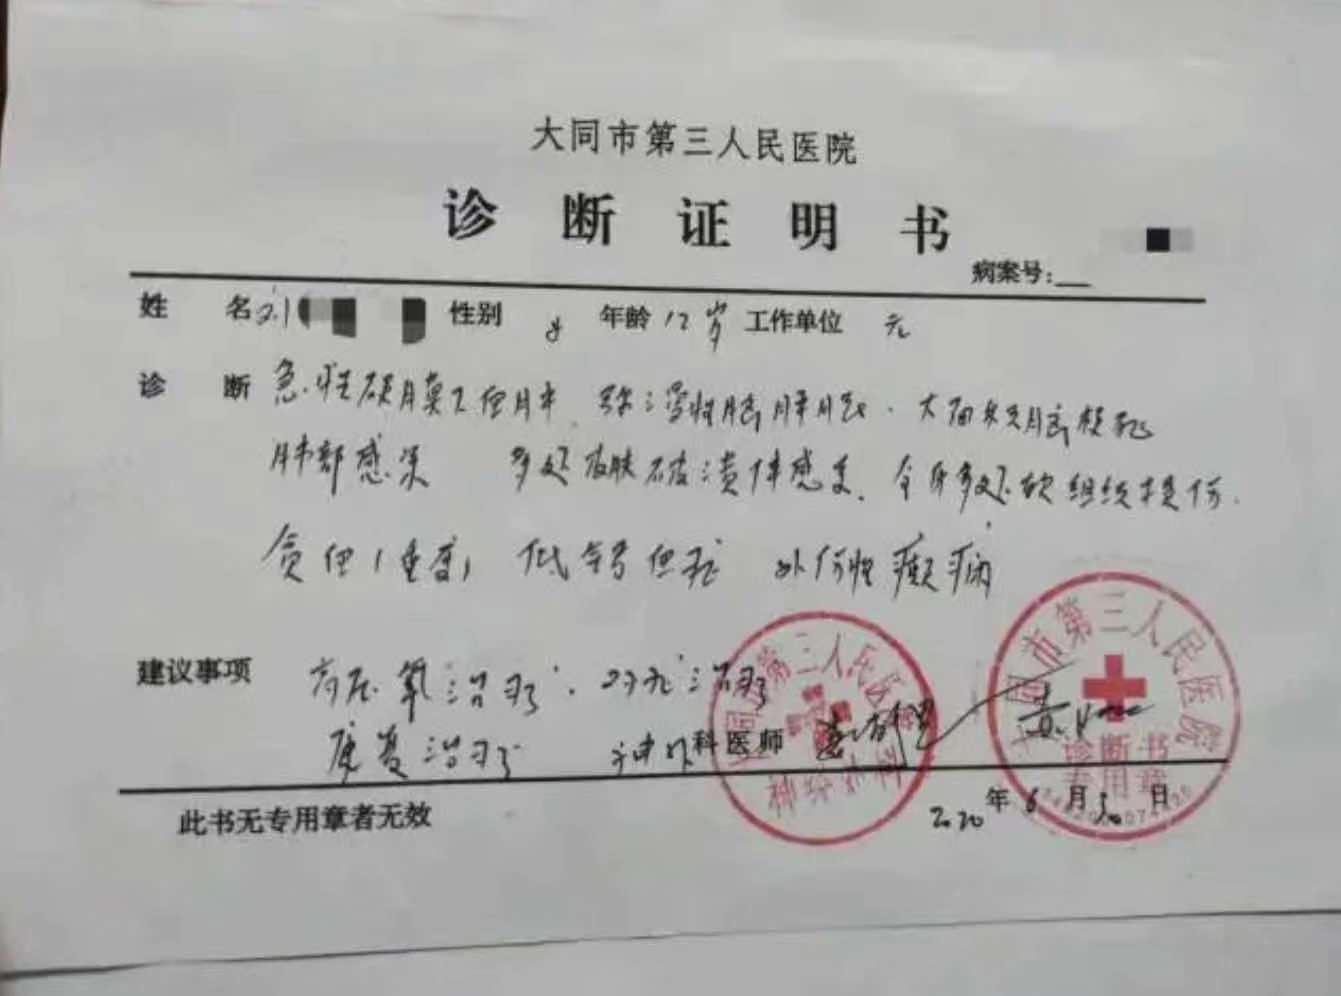 大同市第三人民医院
诊断证明书
病案号:
姓名 刘 性别 女 年龄 12岁 工作单位 无
诊断 急性硬膜下血肿 弥漫性脑肿胀. 大面积脑梗死
肺部感染 多处皮肤破溃伴感染. 全身多处软组织挫伤.
贫血(重度) 低蛋白血症 外伤性癫痫
建议事项 高压氧治疗. 对症治疗
康复治疗 神外科医师
2020年6月30日
此书无专用章者无效
大同市第三人民医院
神经外科
大同市第三人民医院
诊断书
专用章